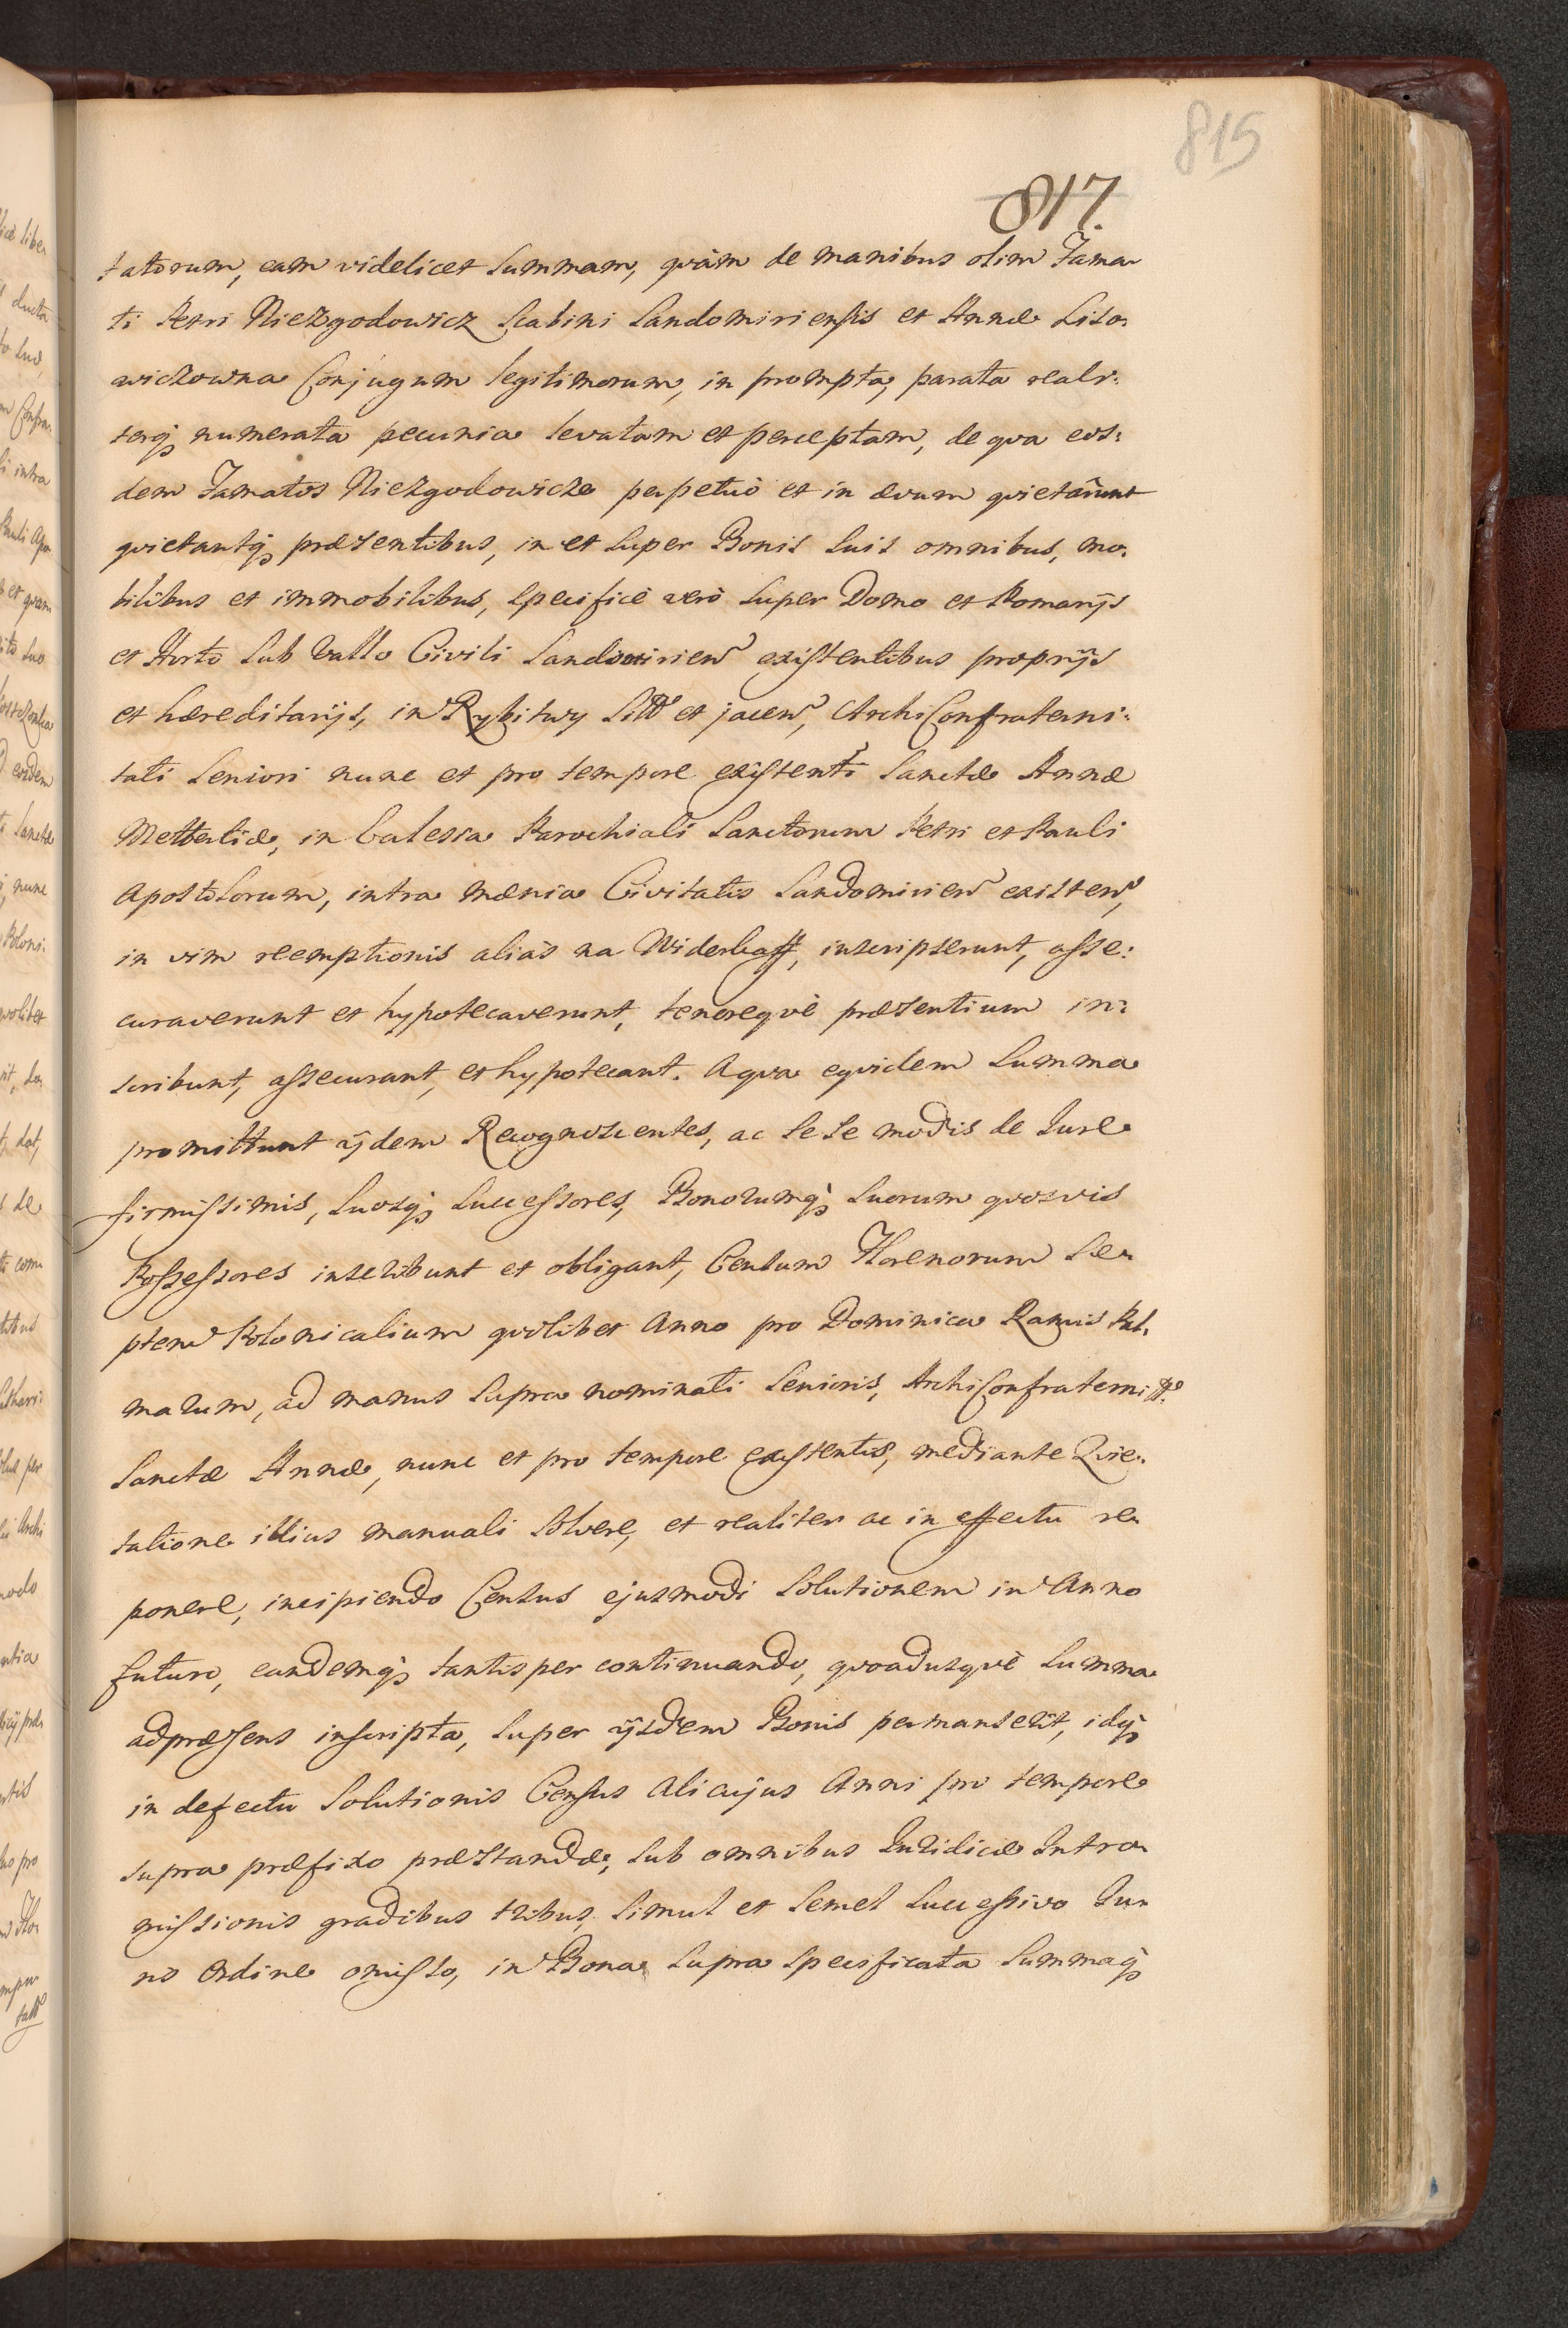 815
817.
tatorum, eam videlicet Summam, quàm de manibus olim Fama-
ti Petri Niezgodowicz Scabini Sandomiriensis et Annæ Liso-
wiczowna Conjugum legitimorum, in prompta, parata reali-
terq; numerata pecunia levatam et perceptam, de qva eos:
dem Famatos Niezgodowicze perpetuò et in ævum qvietârunt
qvietantq; præsentibus, in et super Bonis suis omnibus, mo-
bilibus et immobilibus, specificè verò super Domo et Pomarijs
et Horto sub Vallo Civili Sandomirien existentibus proprijs
et hæreditarijs, in Rybitwy Sitt et jacen, ArchiConfraterni:
tati Seniori nunc et pro tempore existenti Sanctæ Annæ
Mettertiæ, in Ecclesia Parochiali Sanctorum Petri et Pauli
Apostolorum, intra mænia Civitatis Sandomirien existen,
in vim reemptionis aliàs na Widerkaff, inscripserunt, asse:
curaverunt et hypotecaverunt, tenoreqvè præsentium in:
scribunt, assecurant, et hypotecant. A qva eqvidem Summa
promittunt ijdem Recognoscentes, ac sese modis de Jure
firmissimis, suosq; Successores, Bonorumq; suorum qvosvis
Possessores inscribunt et obligant, Censum Florenorum Se-
ptem Polonicalium qvolibet Anno pro Dominica Ramis Pal-
marum, ad manus supra nominati Senioris, ArchiConfraternitt
Sanctæ Annæ, nunc et pro tempore existentis, mediante Qvie-
tatione illius manuali solvere, et realiter ac in effectu re-
ponere, incipiendo Census ejusmodi Solutionem in Anno
futuro, eandemq; tantisper continuando, qvoadusqvè Summa
adpræsens inscripta, super ijsdem Bonis permanserit, idq;
in defectu Solutionis Census alicujus Anni pro tempore
supra præfixo præstandæ, sub omnibus Juridicæ Intro-
missionis gradibus tribus, simul et semel successivo Ju-
ris Ordine omisso, in Bona supra specificata Summaq;